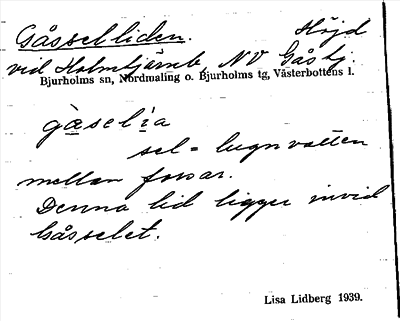 Gåsselliden. Höjd
vid Holmtjärnb, NV Gåstj.
Bjurholms sn, Nordmaling o. Bjurholms tg, Västerbottens l.
gàselìa
sel = lugnvatten
mellan forsar.
Denna lid ligger invid
Gåsselet.
Lisa Lidberg 1939.